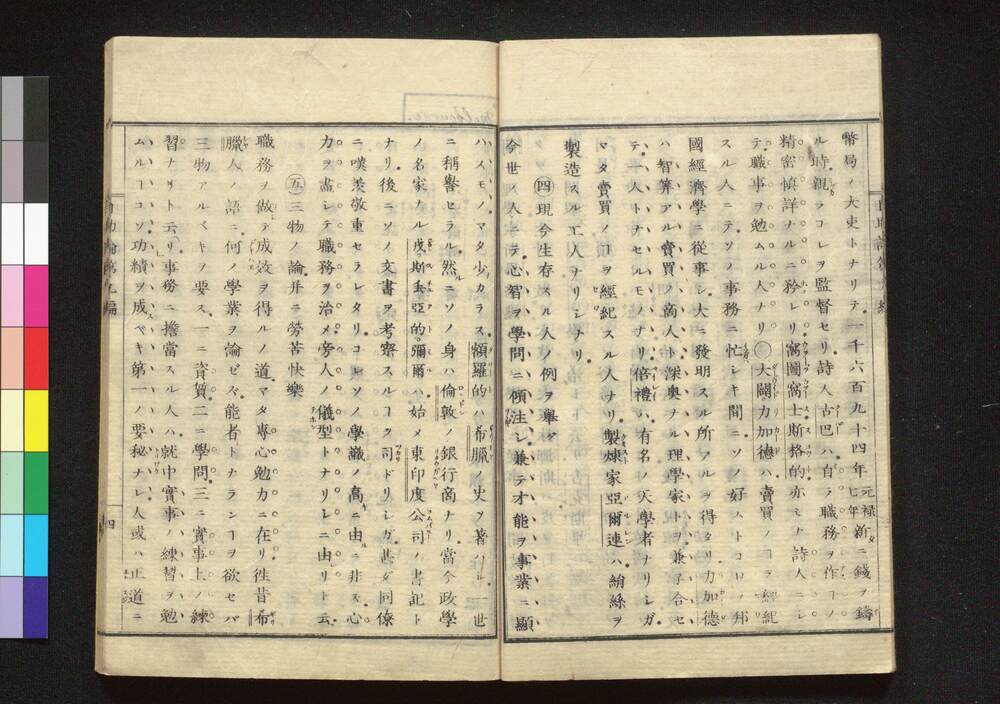 幣局ノ大吏トナリテ一千六百九十四年元禄七年新ニ錢ヲ鑄
ル時親ラコレヲ監督セリ詩人古巴ハ自ラ職務ヲ作コノ
精密慎詳ナルニ矜レリ窩圖窩士斯格的亦ミナ詩人ニシ
テ職事ヲ勉ムル人ナリ〇大闢力加德ハ賣買ノコヲ經紀
スル人ニテソノ事務ニ忙シキ間ニソノ好ムトコロノ邦
國經濟學ニ從事シ大ニ發明スル所アルヲ得タリ力加德
ハ智算アル賣買ノ商人ト深奥ナル理學家トヲ兼子合セ
テ人トナセルモノナリ倍禮ハ有名ノ天學者ナリシガ
マタ賣買ノコヲ經紀スル人ナリ製煉家亞爾連ハ絹絲ヲ
製造スル工人ナリシナリ
㊃現今生存スル人ノ例ヲ擧グ
今世ノ人ニテ心智ヲ學問ニ傾注シ兼テ才能ヲ事業ニ顯
ハスモノマタ少カラス額羅的ハ希臘ノ史ヲ著ハシ一世
ニ稱譽セラル然ニソノ身ハ倫敦ノ銀行商ナリ當今政學
ノ名家ノ戎斯丢亞的彌爾ハ始メ東印度公司ノ書記ト
ナリ後ニソノ文書ヲ考察スルコヲ司ドリシガ甚ダ同僚
ニ嘆羨敬重セラレタリコレソノ學識ノ高ニ由ニ非ス心
力ヲ盡シテ職務ヲ治メ旁人ノ儀型トナリシニ由リト云
㊄三物ノ論并ニ勞苦快樂
職務ヲ做テ成效ヲ得ルノ道マタ專心勉力ニ在リ徃昔希
臘人ノ語ニ何ノ學業ヲ論ゼズ能者トナランコヲ欲セバ
三物アルベキヲ要ス一ニ資質二ニ學問三ニ實事上ノ練
習ナリト云リ事務ニ擔當スル人ハ就中實事ノ練習ヲ勉
ムルコソ功績ヲ成ベキ第一ノ要秘ナレ人或ハ正道ニ
四